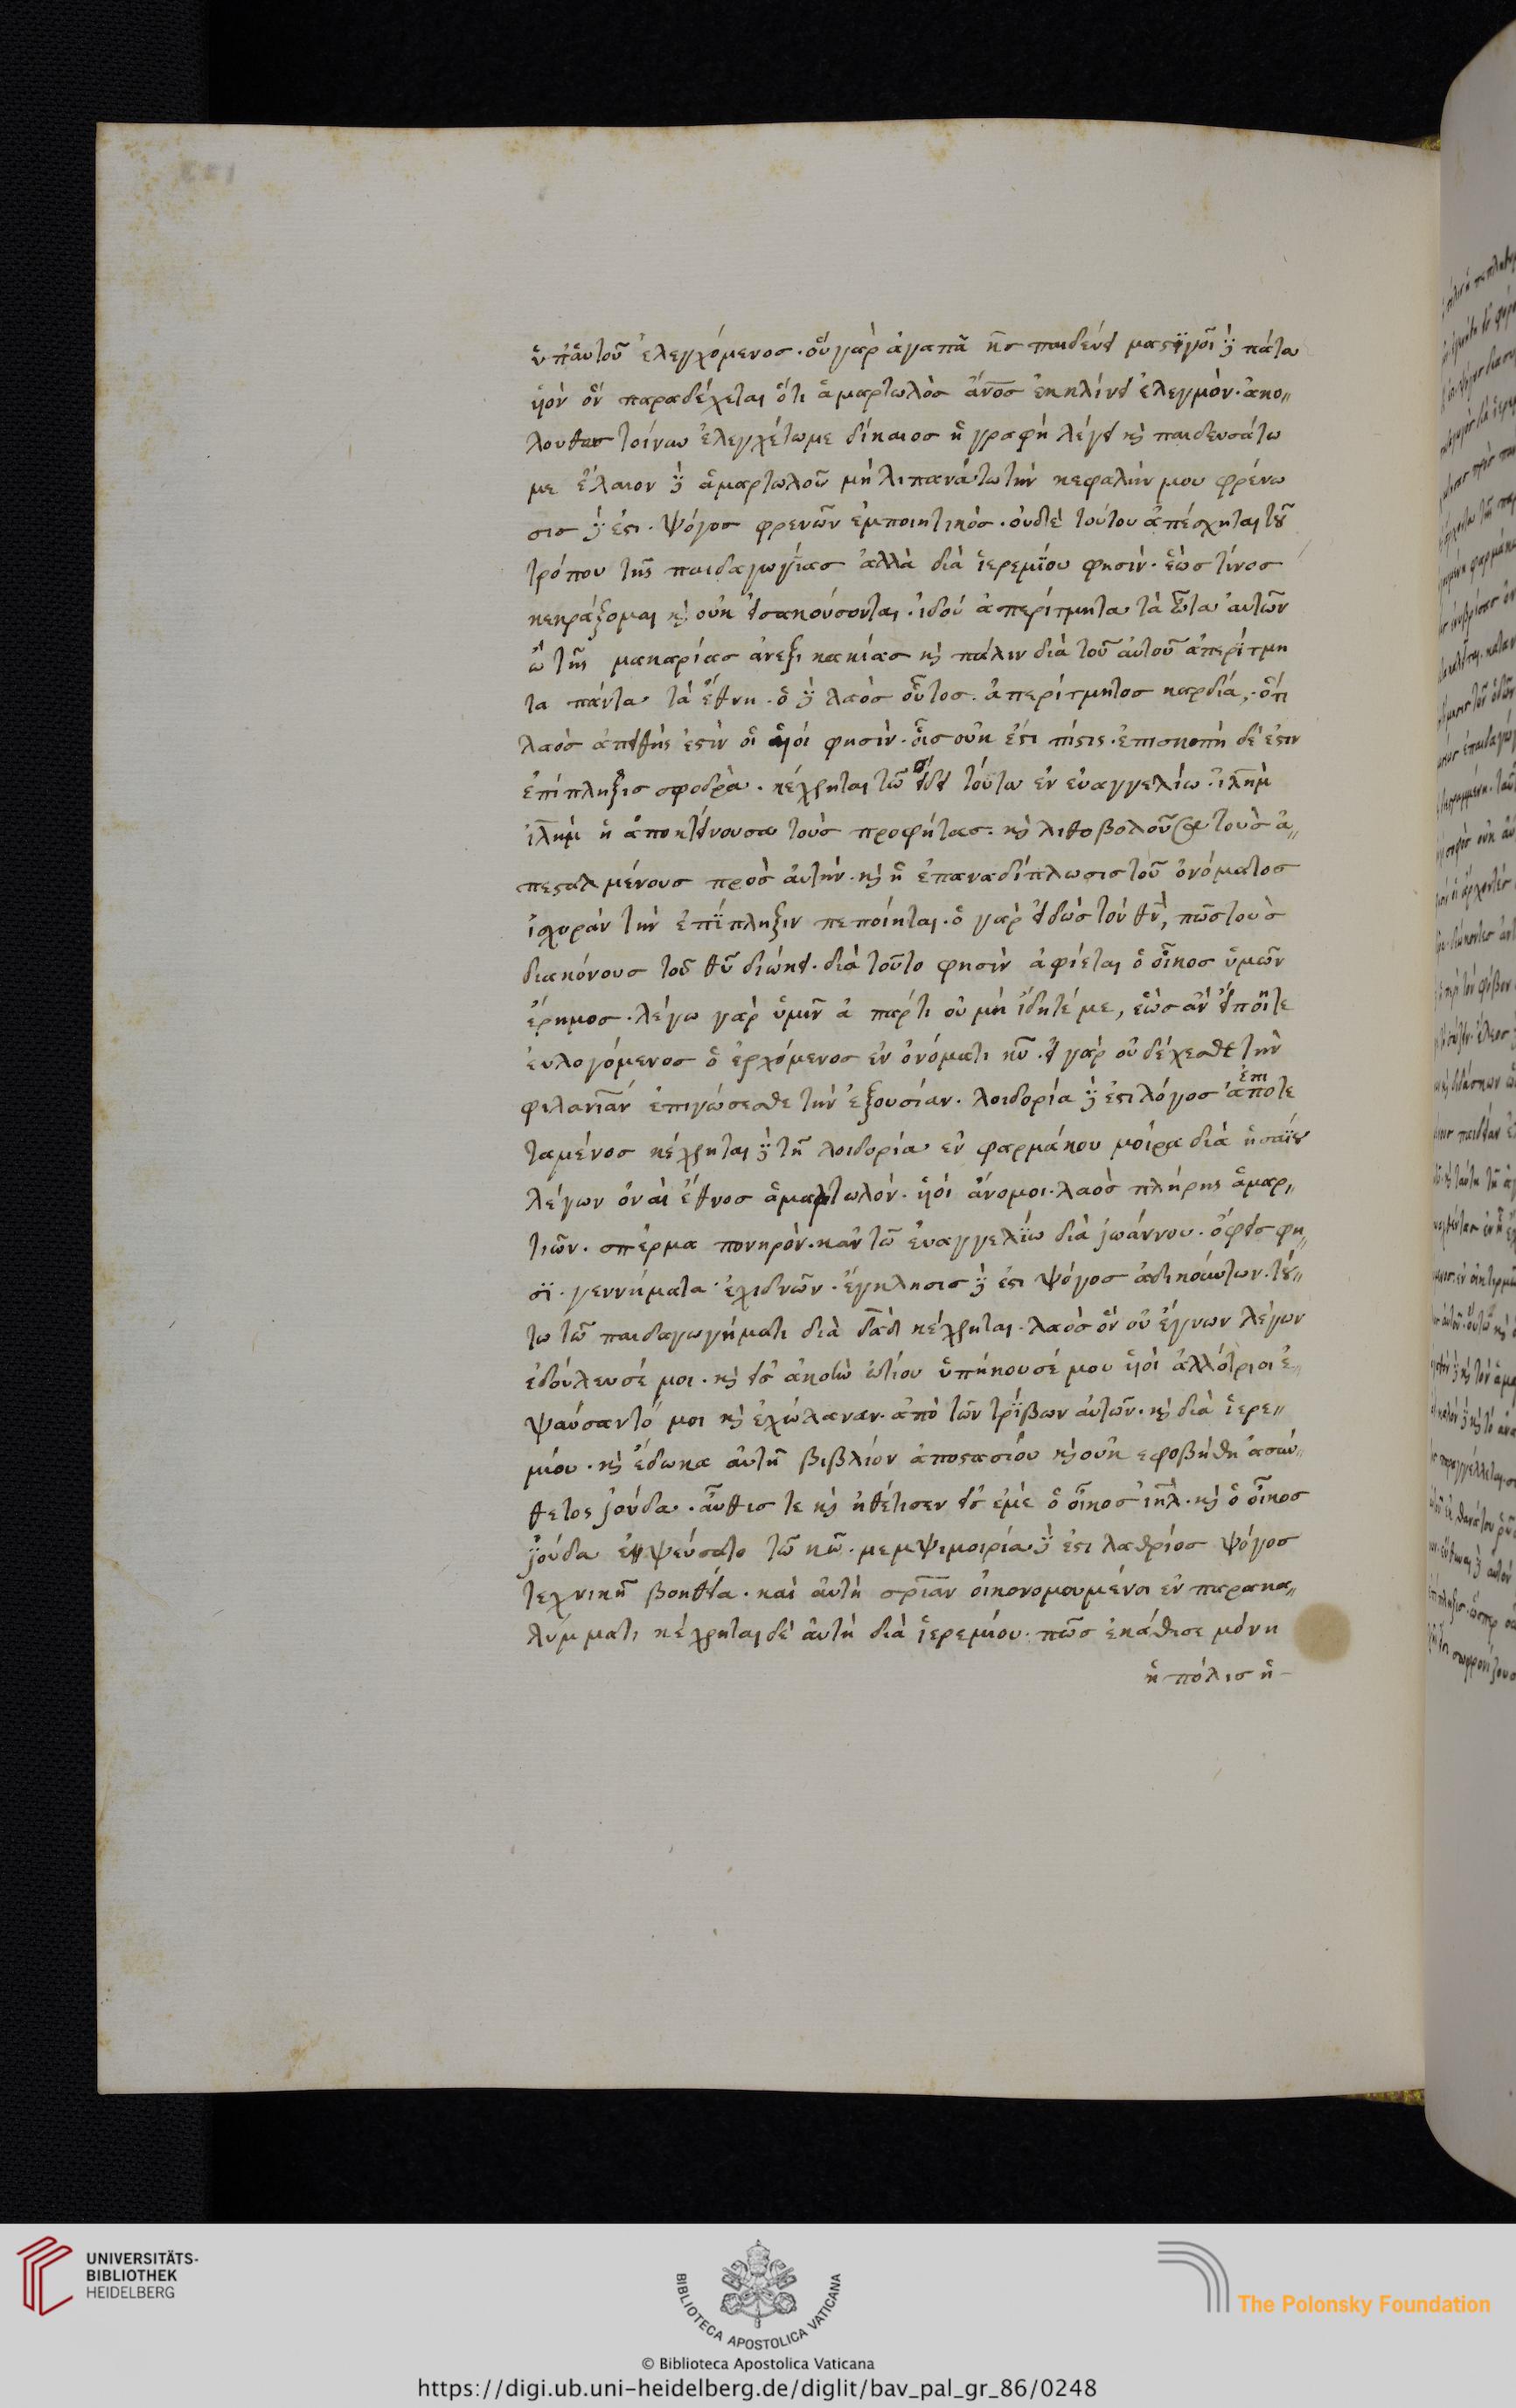 ὑπ' αὐτοῦ ἐλεγχόμενος. ὃν γὰρ ἀγαπᾶ κ̅ς παιδεύει μαστιγοῖ δὲ πάντα
υἱὸν ὃν παραδέχεται ὅτι ἁμαρτωλὸς ἄν̅ος ἐκκλίνει ἐλεγμόν. ἀκο〃
λούθως τοίνυν ἐλεγχέτω με δίκαιος ἡ γραφὴ λέγει καὶ παιδευσάτω
με ἔλαιον δὲ ἁμαρτωλοῦ μὴ λιπανάτω τὴν κεφαλήν μου φρένω
σις δέ ἐστι. ψόγος φρενῶν ἐμποιητικός. οὐδὲ τούτου ἀπέσχηται τοῦ
τρόπου τῆς παιδαγωγίας ἀλλὰ διὰ ἱερεμίου φησίν. ἕως τίνος
κεκράξομαι καὶ οὐκ εἰσακούσονται. ἰδοὺ ἀπερίτμητα τὰ ὦτα αὐτῶν
ὢ τῆς μακαρίας ἀνεξικακίας καὶ πάλιν διὰ τοῦ αὐτοῦ ἀπερίτμη
τα πάντα τὰ ἔθνη. ὁ δὲ λαὸς οὗτος. ἀπερίτμητος καρδία, ὅτι
λαὸς ἀπειθής ἐστιν οἱ υἱοί φησίν. οἷς οὐκ ἔστι πίστις. ἐπισκοπὴ δέ ἐστιν
ἐπίπληξις σφοδρὰ. κέχρηται τῶ εἴδει τούτω ἐν εὐαγγελίω. ἱλ̅ημ
ἱλ̅ημ ἡ ἀποκτείνουσα τοὺς προφήτας. καὶ λιθοβολοῦσα τοὺς ἀ〃
πεσταλμένους πρὸς αὐτήν. καὶ ἡ ἐπαναδίπλωσις τοῦ ὀνόματος
ἰσχυρὰν τὴν ἐπίπληξιν πεποίηται. ὁ γὰρ εἰδὼς τὸν θ̅ν, πῶς τοὺς
διακόνους τοῦ θ̅υ διώκει. διὰ τοῦτο φησὶν ἀφίεται ὁ οἶκος ὑμῶν
ἔρημος. λέγω γὰρ ὑμῖν ἀπάρτι οὐ μὴ ἴδητέ με, ἕως ἂν εἴποιτε
εὐλογόμενος ὁ ἐρχόμενος ἐν ὀνόματι κ̅υ. εἰ γὰρ οὐ δέχεσθε τὴν
φιλαν̅ιαν ἐπιγνώσεσθε τὴν ἐξουσίαν. λοιδορία δέ ἐστι λόγος ἐπι ἀποτε
ταμένος κέχρηται δὲ τῆ λοιδορία ἐν φαρμάκου μοίρα διὰ ἡσαΐου
λέγων οὐαὶ ἔθνος ἁμαρτωλόν. υἱοὶ ἄνομοι. λαὸς πλήρης ἁμαρ〃
τιῶν. σπέρμα πονηρόν. κἂν τῶ εὐαγγελίω διὰ ἰωάννου. ὄφεις φη〃
σὶ. γεννήματα ἐχιδνῶν. ἔγκλησις δέ ἐστι ψόγος ἀδικούντων. τού〃
τω τῶ παιδαγωγήματι διὰ δ̅αδ κέχρηται. λαὸς ὃν οὐ ἔγνων λέγων
ἐδούλευσέ μοι. καὶ εἰς ἀκοὴν ὠτίου ὑπήκουσέ μου υἱοὶ ἀλλότριοι ἐ〃
ψαύσαντό μοι καὶ ἐχώλαναν. ἀπὸ τῶν τρίβων αὐτῶν. καὶ διὰ ἱερε〃
μίου. καὶ ἔδωκα αὐτῆ βιβλίον ἀποστασίου καὶ οὐκ ἐφοβήθη ἀσύν〃
θετος ἰούδα. αὖθις τε καὶ ἠθέτισεν εἰς ἐμὲ ὁ οἶκος ἰη̅λ. καὶ ὁ οἶκος
ἰούδα ἐψεύσατο τῶ κ̅ω. μεμψιμοιρία δέ ἐστι λάθριος ψόγος
τεχνικῆ βοηθεία. καὶ αὐτὴ σρ̅ιαν οἰκονομουμένοι ἐν παρακα〃
λύμματι κέχρηται δὲ αὐτὴ διὰ ἱερεμίου. πῶς ἐκάθισε μόνη
ἡ πόλις ἡ –
UNIVERSITÄTS-
BIBLIOTHEK
HEIDELBERG
BIBLIOTECA APOSTOLICA VATICANA
The Polonsky Foundation
© Biblioteca Apostolica Vaticana
https://digi.ub.uni-heidelberg.de/diglit/bav_pal_gr_86/0248